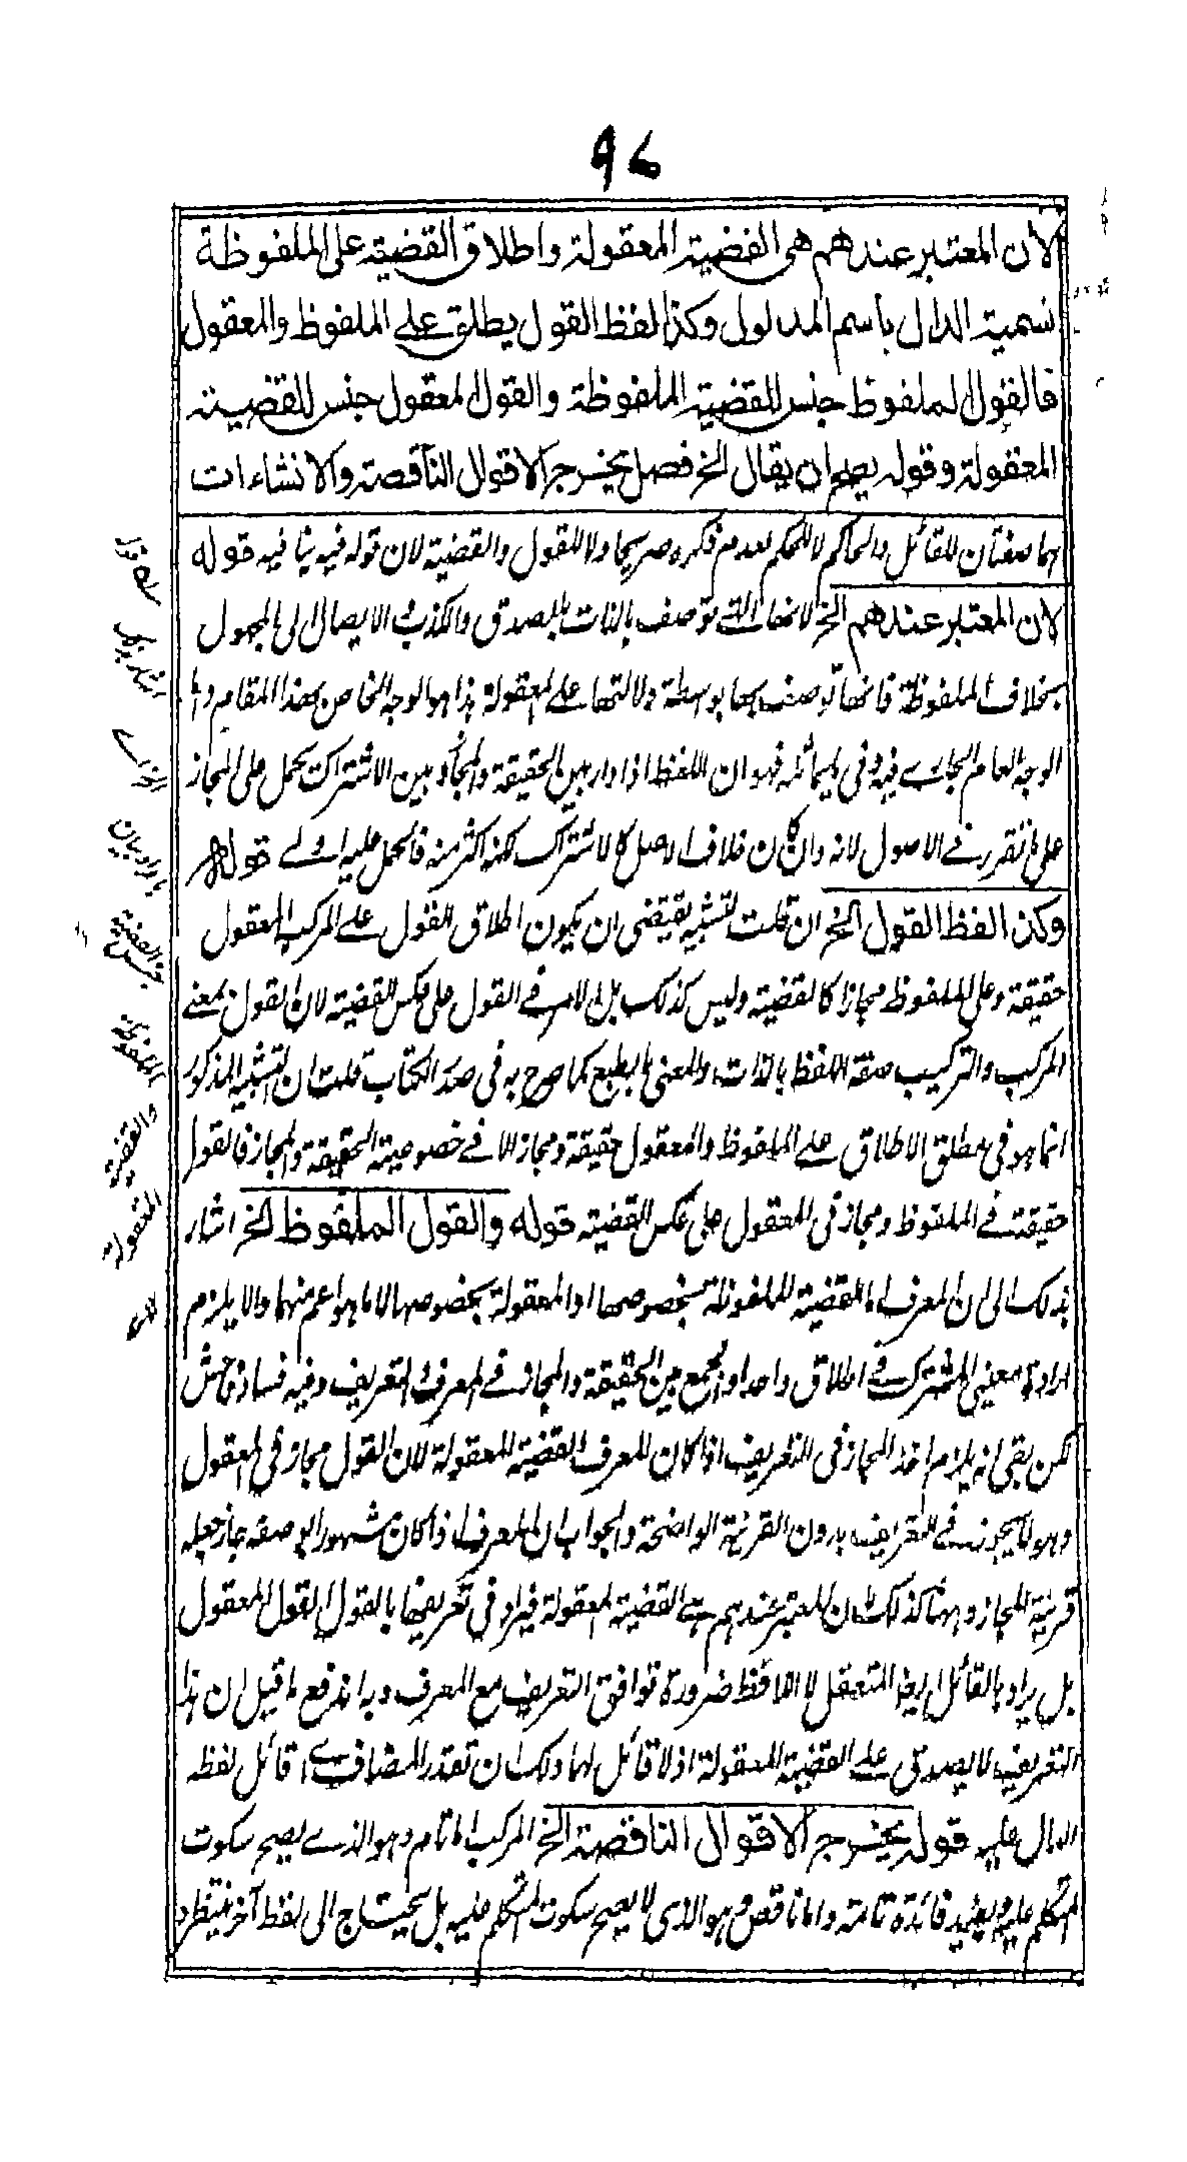 ۹۶
لان المعتبر عندهم هى القضية المعقولة واطلاق القضية على الملفوظة
تسمية الدال باسم المدلول وكذا لفظ القول يطلق على الملفوظ والمعقول
فالقول الملفوظ جنس للقضية الملفوظة والقول المعقول جنس للقضية
المعقولة وقوله يصح ان يقال الخ فصل يخرج الاقوال الناقصة والانشاءات
لهما صفتان للقائل والحاكم لا للحكم لعدم ذكره صريحا ولا للقول والقضية لان قوله فيه ينافيه قوله
لان المعتبر عندهم الخ لانها التي توصف بالذات بالصدق والكذب الايصال الى المجهول
بخلاف الملفوظة فانها توصف بها بوسطة دلالتها على المعقولة هذا هو الوجه الخاص بهذا المقام واما
الوجه العام الجارى فيه وفي فهو ان اللفظ اذا دار بين الحقيقة والمجاز وبين الاشتراك يحمل على المجاز
على ما تقرر في الاصول لانه وان كان خلاف الاصل كالاشتراك لكنه اكثر منه فالحمل عليه اولى قوله
وكذا لفظ القول الخ ان قلت التشبيه يقتضى ان يكون اطلاق القول على المركب المعقول
حقيقة وعلى الملفوظ مجازا كالقضية وليس كذلك بل الامر في القول على عكس القضية لان القول بمعنى
المركب والتركيب صفة اللفظ بالذات والمعنى بالطبع كما صرح به فى صدر الكتاب قلت ان التشبيه المذكور
انما هو فى مطلق الاطلاق على الملفوظ والمعقول حقيقة ومجازا لا في خصوصية الحقيقة والمجاز فالقول
حقيقة في الملفوظ ومجاز فى المعقول على عكس القضية قوله والقول الملفوظ الخ اشار
بذلك الى ان المعرف اما القضية الملفوظة بخصوصها او المعقولة بخصوصها لا ما هو اعم منهما والا يلزم
ارادة معنيى المشترك في اطلاق واحد او الجمع بين الحقيقة والمجاز في المعرف والتعريف وفيه فساد فاحش
لكن بقى انه يلزم اخذ المجاز فى التعريف اذا كان المعرف القضية المعقولة لان القول مجاز فى المعقول
وهو لا يجوز في التعريف بدون القرينة الواضحة والجواب ان المعرف اذا كان مشهورا بوصفه جاز جعله
قرينة المجاز وههنا كذلك لان المعتبر عندهم هى القضية المعقولة فيراد فى تعريفها بالقول القول المعقول
بل يراد بالقائل ايضا المتعقل لا اللافظ ضرورة توافق التعريف مع المعرف وبه اندفع ما قيل ان هذا
التعريف لا يصدق على القضية المعقولة اذ لا قائل لها ولك ان تقدر المضاف اى قائل لفظه
الدال عليه قوله يخرج الاقوال الناقصة الخ المركب اما تام وهو الذى يصح سكوت
المتكلم عليه ويفيد فائدة تامة واما ناقص وهو الذى لا يصح سكوت المتكلم عليه بل يحتاج الى لفظ آخر ينتظره
والقضية
المعقولة